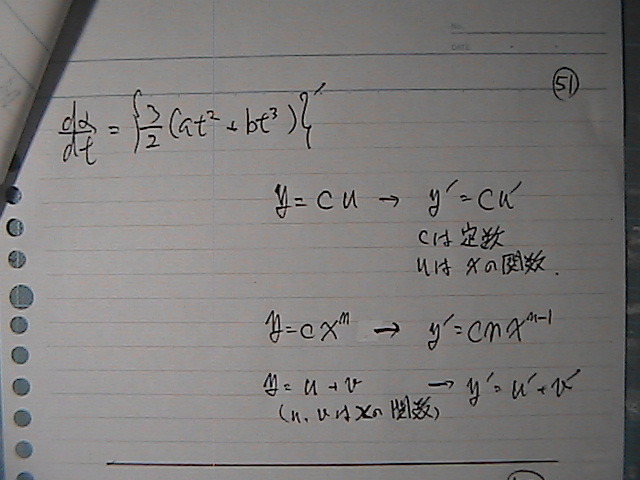 NO.
DATE
51
dα/dt = {3/2 (at² + bt³)}′
y = cu → y′ = cu′
cは定数
uはxの関数.
y = cxⁿ → y′ = cnxⁿ⁻¹
y = u + v → y′ = u′ + v′
(u, vはxの関数)